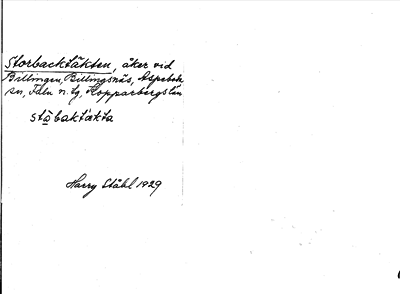 Storbacktäkten, åker vid
Billingen, Billingsnäs, Aspeboda
sn, Falu n. tg, Kopparbergs län
stōbaktäkta
Harry Ståhl 1929